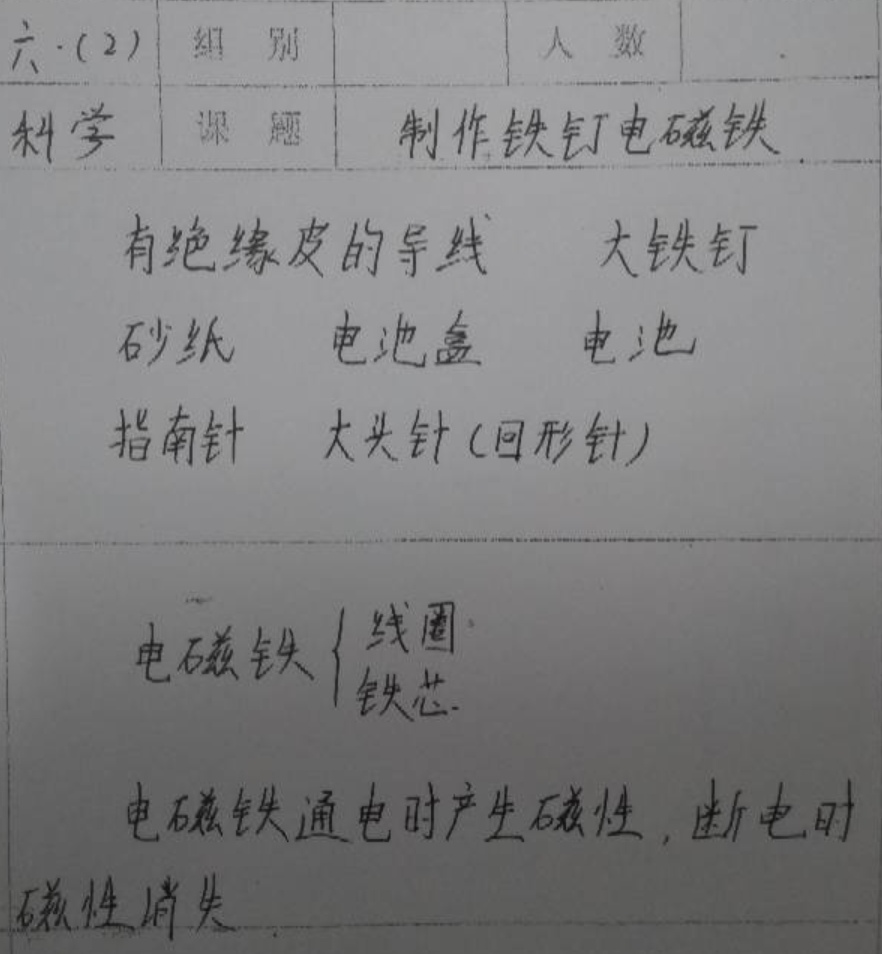 六.(2) 组别 人数
科学 课题 制作铁钉电磁铁
有绝缘皮的导线 大铁钉
砂纸 电池盒 电池
指南针 大头针(回形针)
电磁铁{线圈
铁芯.
电磁铁通电时产生磁性,断电时
磁性消失